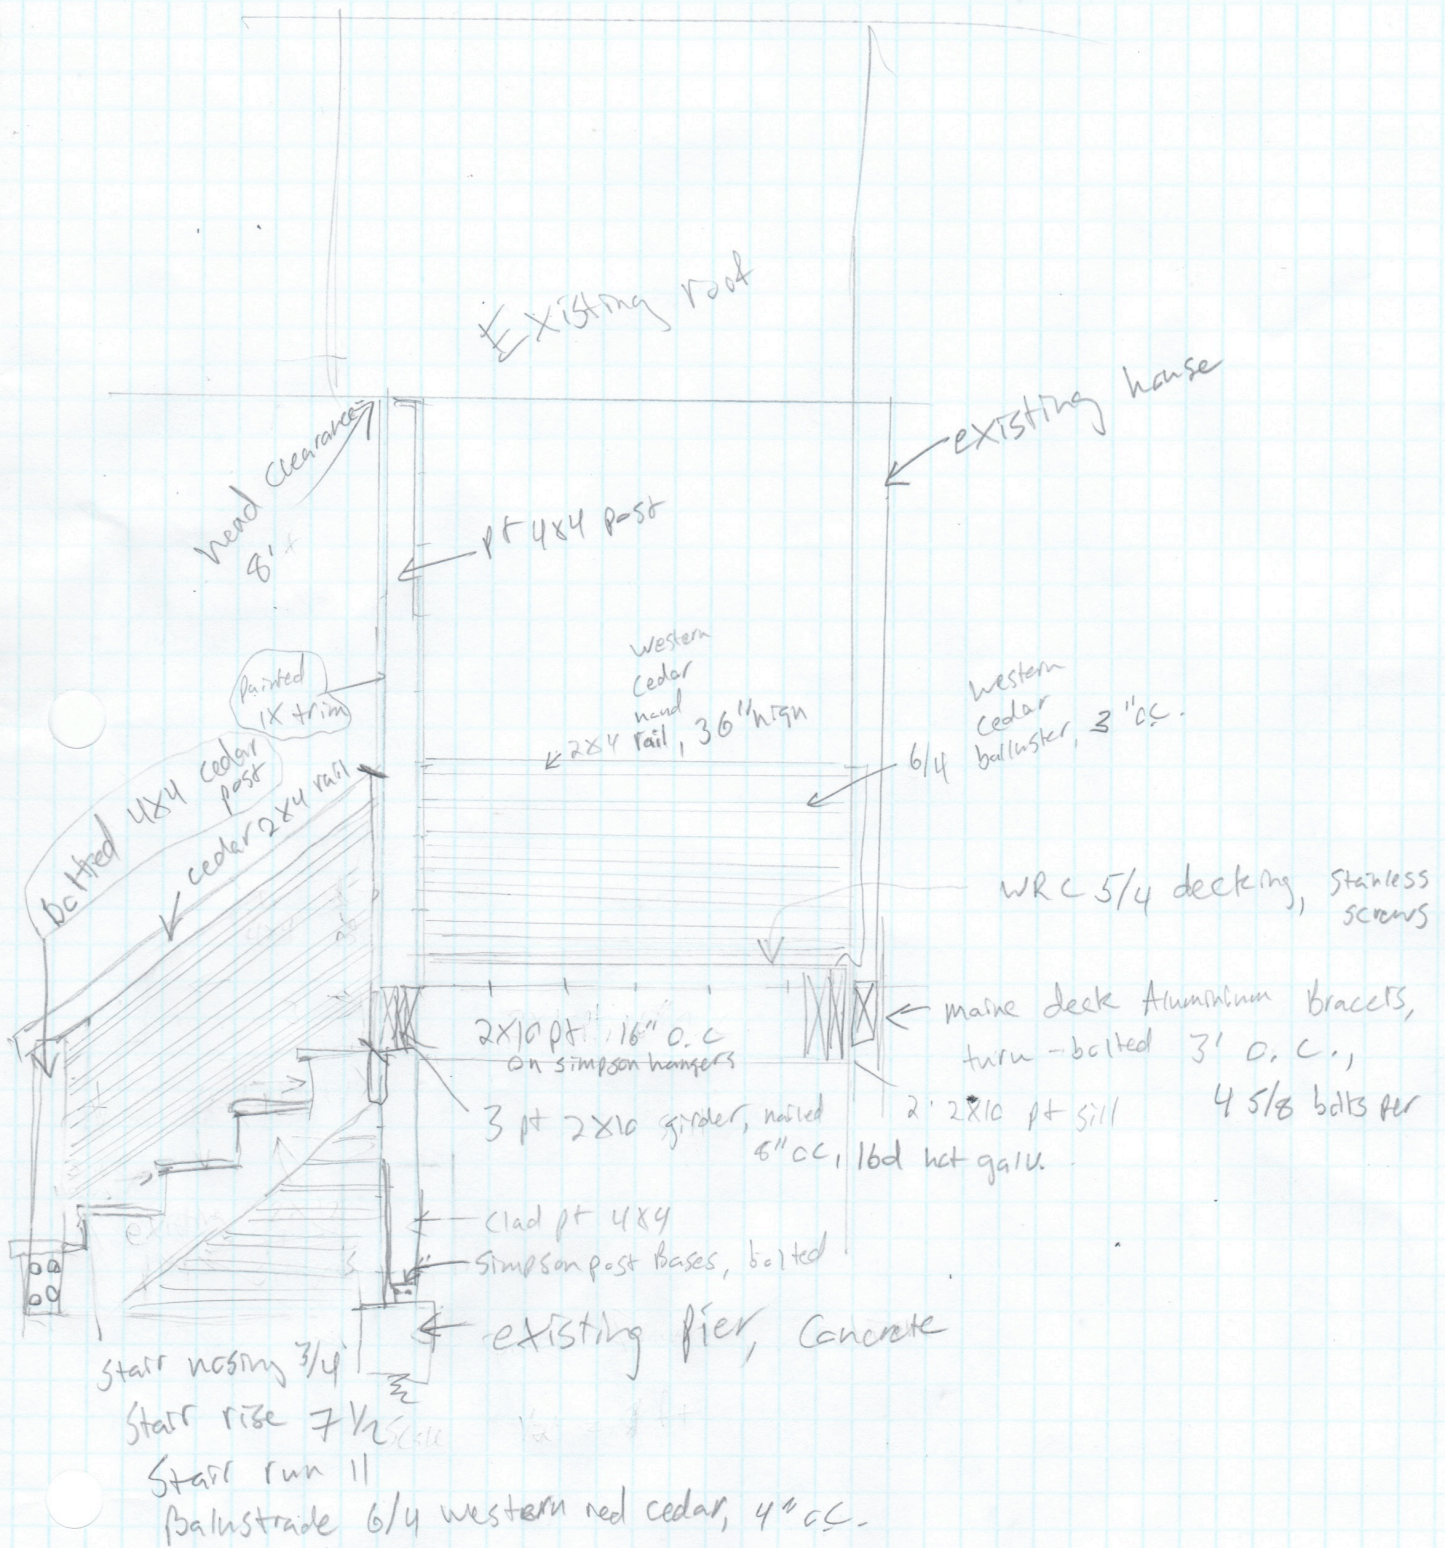 Existing roof
existing house
head clearance
8'+
pt 4x4 post
Painted
1X trim
western
cedar
hand
2x4 rail, 36" high
western
cedar
6/4 balluster, 3" oc.
boltted 4x4 cedar
post
cedar 2x4 rail
WRC 5/4 decking, stainless
screws
maine deck Aluminium bracets,
turn-bolted 3' o.c.,
4 5/8 bolts per
2x10 pt 16" o.c
on simpson hangers
3 pt 2x10 girder, nailed
8" oc, 16d hot galv.
2 2x10 pt sill
clad pt 4x4
Simpson post Bases, bolted
existing Pier, Concrete
Stair nosing 3/4
Stair rise 7 1/2
Scale 1/2
Stair run 11
Balustrade 6/4 western red cedar, 4" oc.